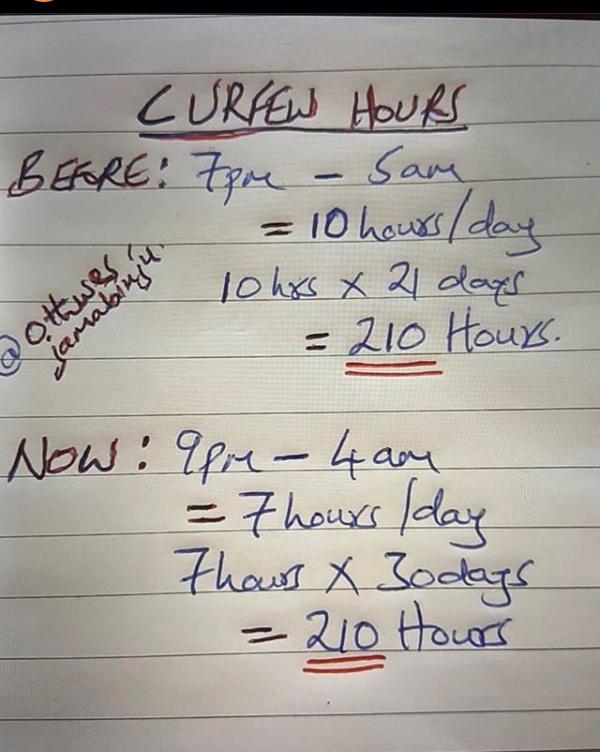 CURFEW HOURS
BEFORE: 7pm - 5am
= 10 hours/day
10 hrs x 21 days
= 210 Hours.
@
NOW: 9pm - 4am
= 7 hours/day
7 hours x 30 days
= 210 Hours